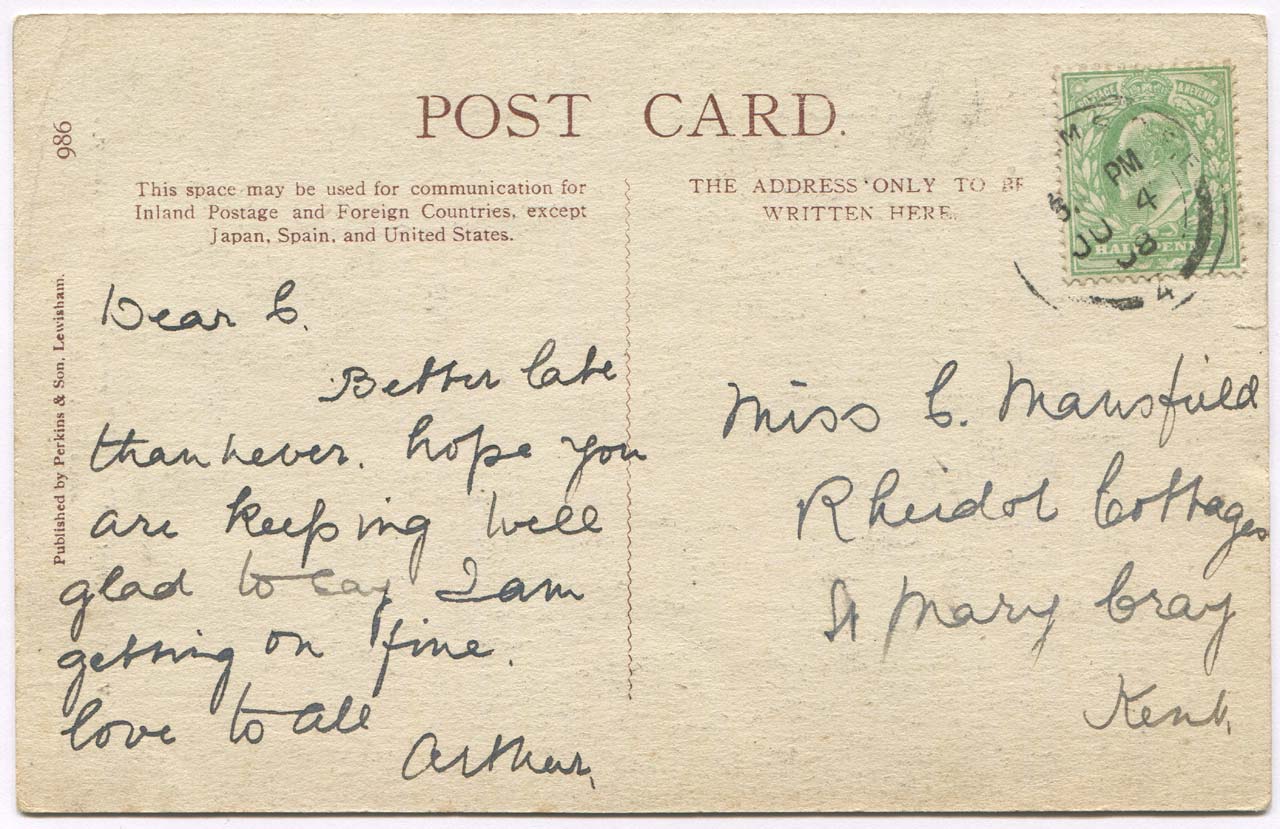 POST CARD.
986
This space may be used for communication for
Inland Postage and Foreign Countries, except
Japan, Spain, and United States.
THE ADDRESS ONLY TO BE
WRITTEN HERE.
POSTAGE & REVENUE
HALFPENNY
PM
JU 4
08
4
Published by Perkins & Son, Lewisham.
Dear C.
Better late
than never. hope you
are keeping well
glad to say I am
getting on fine.
love to all
Arthur.
Miss C. Mansfield
Rheidol Cottages
St Mary Cray
Kent.